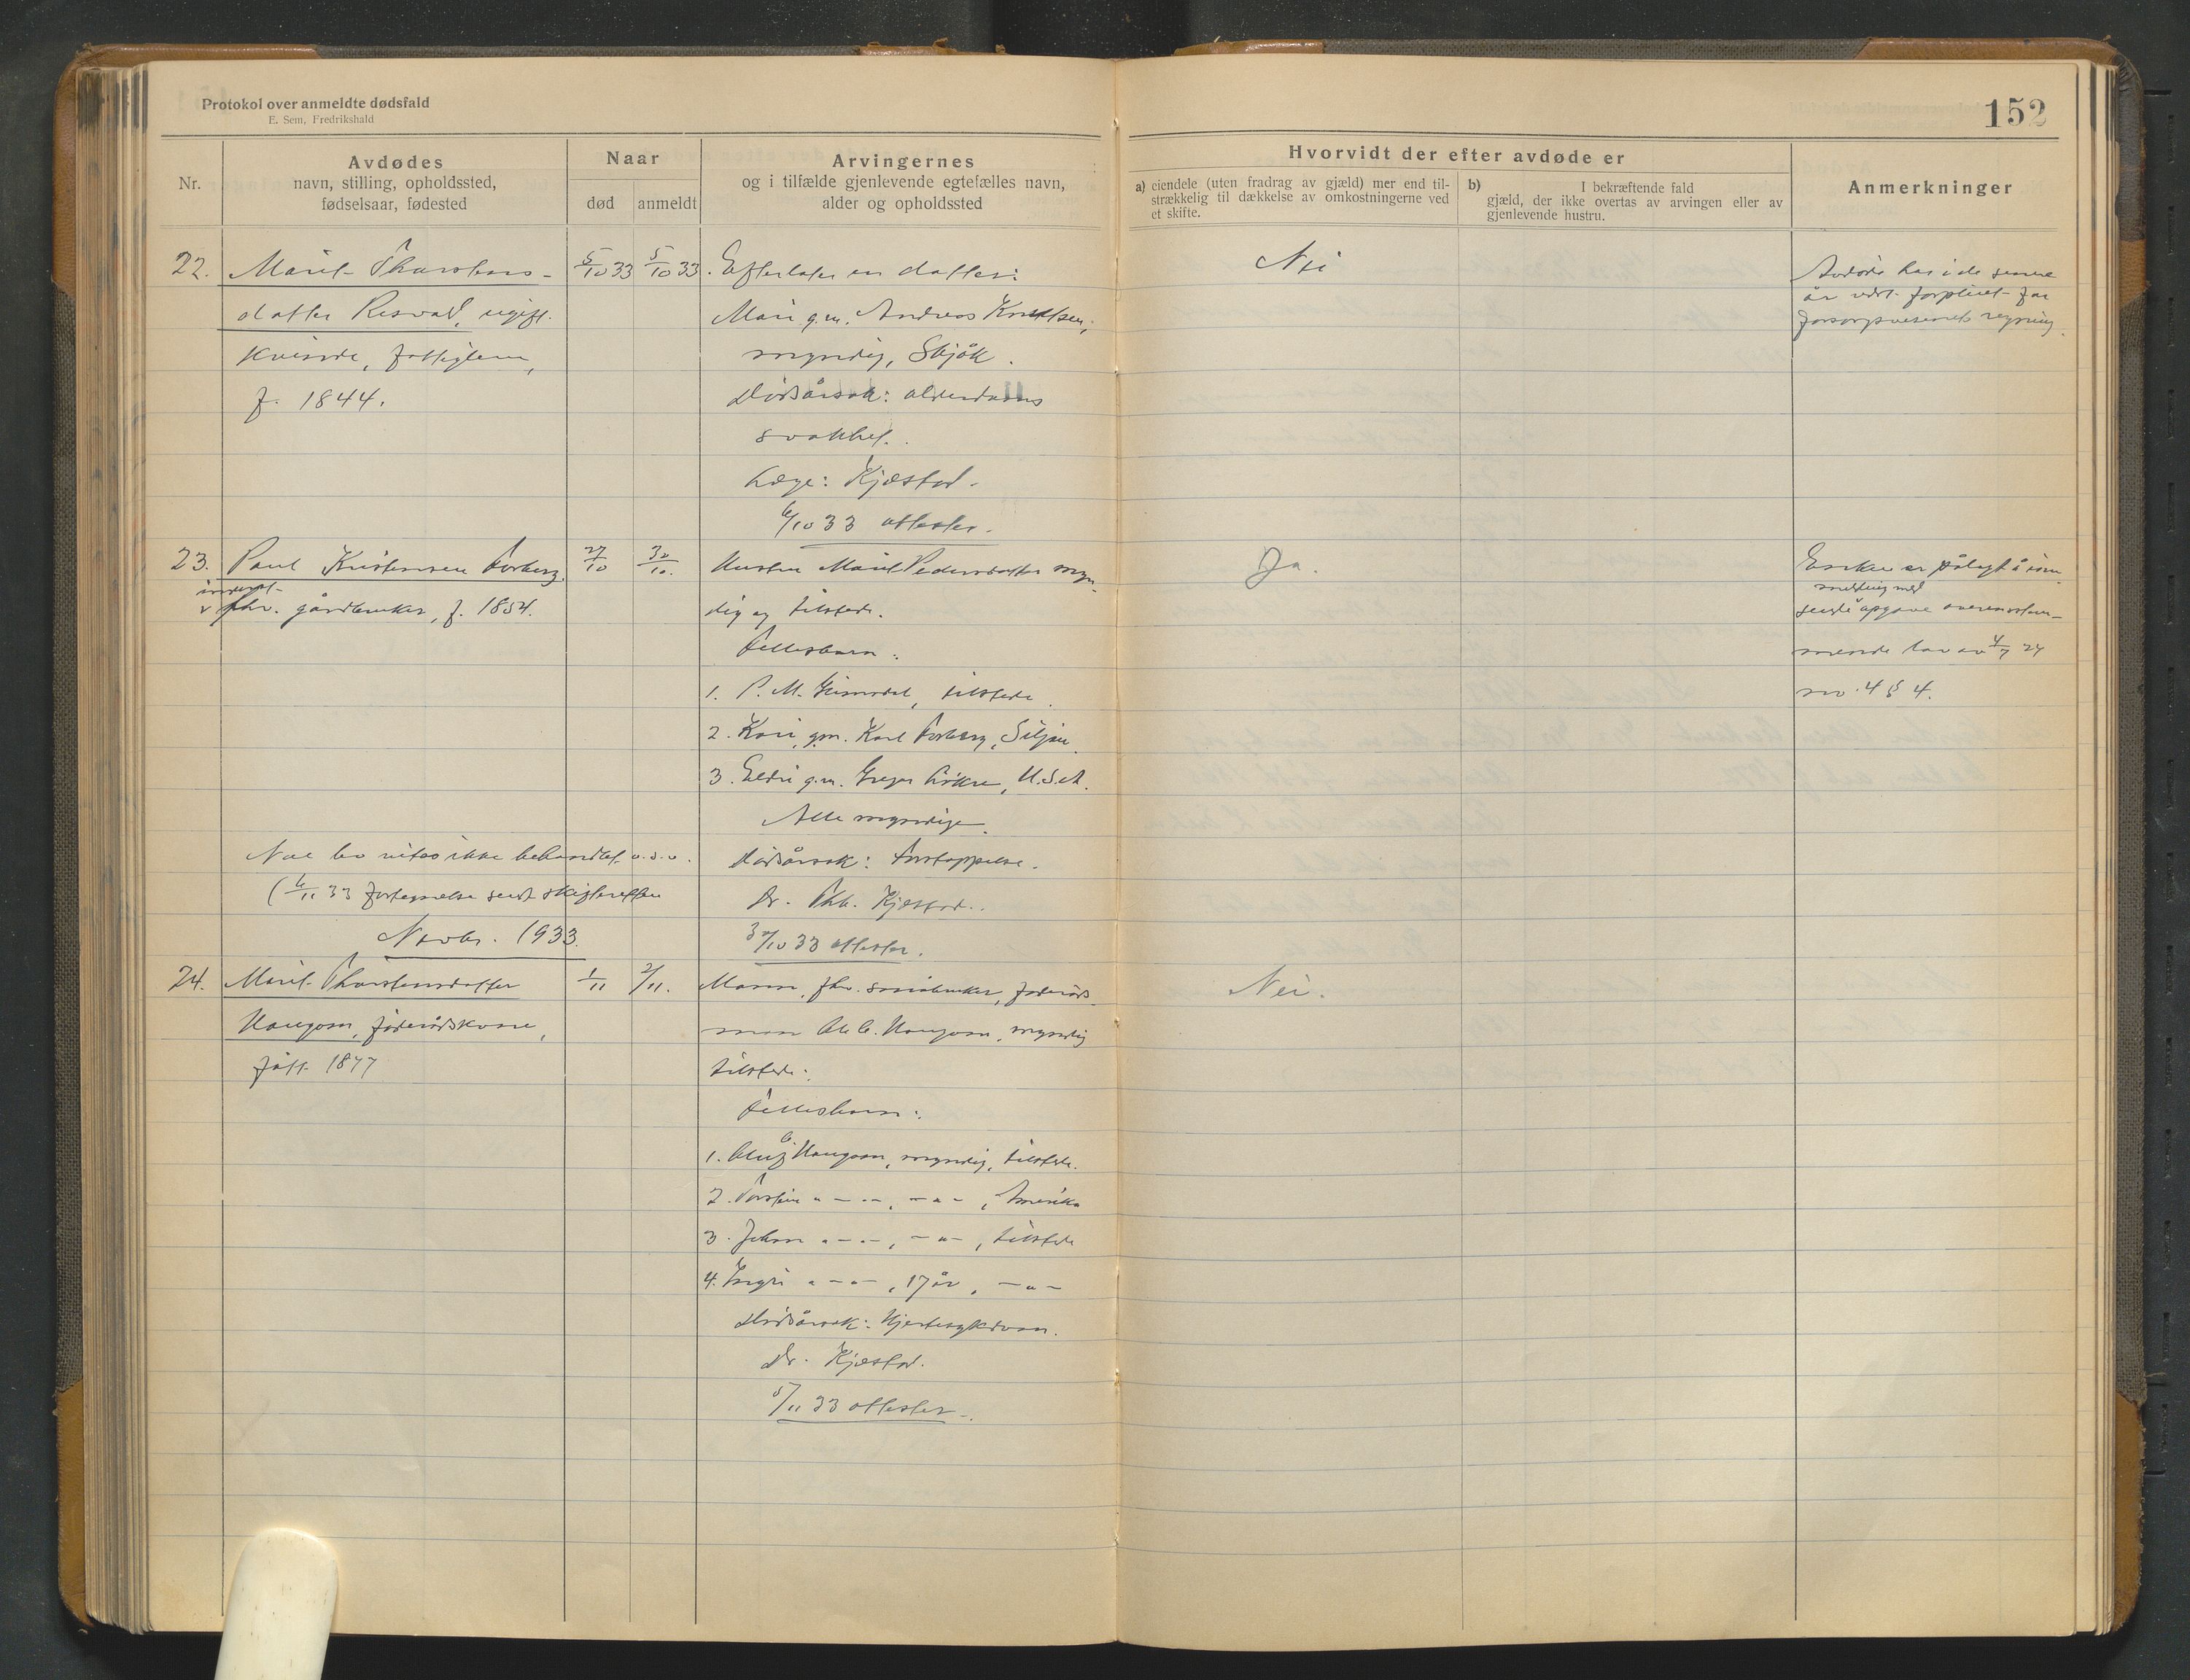 Protokol over anmeldte dødsfald
E. Sem, Fredrikshald
152
Nr.
Avdødes
navn, stilling, opholdssted,
fødselsaar, fødested
Naar
død
anmeldt
Arvingernes
og i tilfælde gjenlevende egtefælles navn,
alder og opholdssted
Hvorvidt der efter avdøde er
a) eiendele (uten fradrag av gjæld) mer end til-
strækkelig til dækkelse av omkostningerne ved
et skifte.
b) I bekræftende fald
gjæld, der ikke overtas av arvingen eller av
gjenlevende hustru.
Anmerkninger
22. Marit Thorstens-
datter Risvald, ugift.
kvinde, fattiglem,
f. 1844.
5/10 33
5/10 33.
Efterlater en datter:
Mari g.m. Andreas Knutsen,
myndig, Skjåk.
Dødsårsak: alderdoms
svakhet.
Læge: Kjæstad.
6/10 33 attester.
Nei
Avdøde har i de senere
år vært forpleiet for
forsorgsvesenets regning.
23. Paul Kristensen Forberg,
inderst
v fhv. gårdbruker, f. 1854.
27/10
30/10.
Hustru Marit Pedersdatter myn-
dig og tilstede.
Fellesbarn:
1. P. M. Grimsdal, tilstede.
2. Kari, gm. Karl Forberg, Siljan.
3. Eldri g.m. Greger Løkre, U.S.A.
Alle myndige.
Dødsårsak: Forstoppelse.
Dr. Thb. Kjæstad.
30/10 33 attester.
Ja.
Enken er pålagt å inn-
sende opgave overensstem-
melse med
mende lov av 4/7 27
no. 4 § 4.
Nal bo vites ikke behandlet o.s.v.
(6/11 33 fortegnelse sendt skifteretten
Novbr. 1933.
24. Marit Thorstensdatter
Haugom, føderådskone,
født 1877
1/11
2/11.
Mann, fhv. småbruker, føderåds-
mann Ole O. Haugom, myndig
tilstede.
Fellesbarn:
1. Haugom, myndig, tilstede.
2. Torstein " - " -, - " -, Amerika
3. Johan " - " -, - " -, tilstede
4. Ingri " - " -, 17 år, - " -
Dødsårsak: Hjertesykdom.
Dr. Kjæstad.
5/11 33 attester.
Nei.